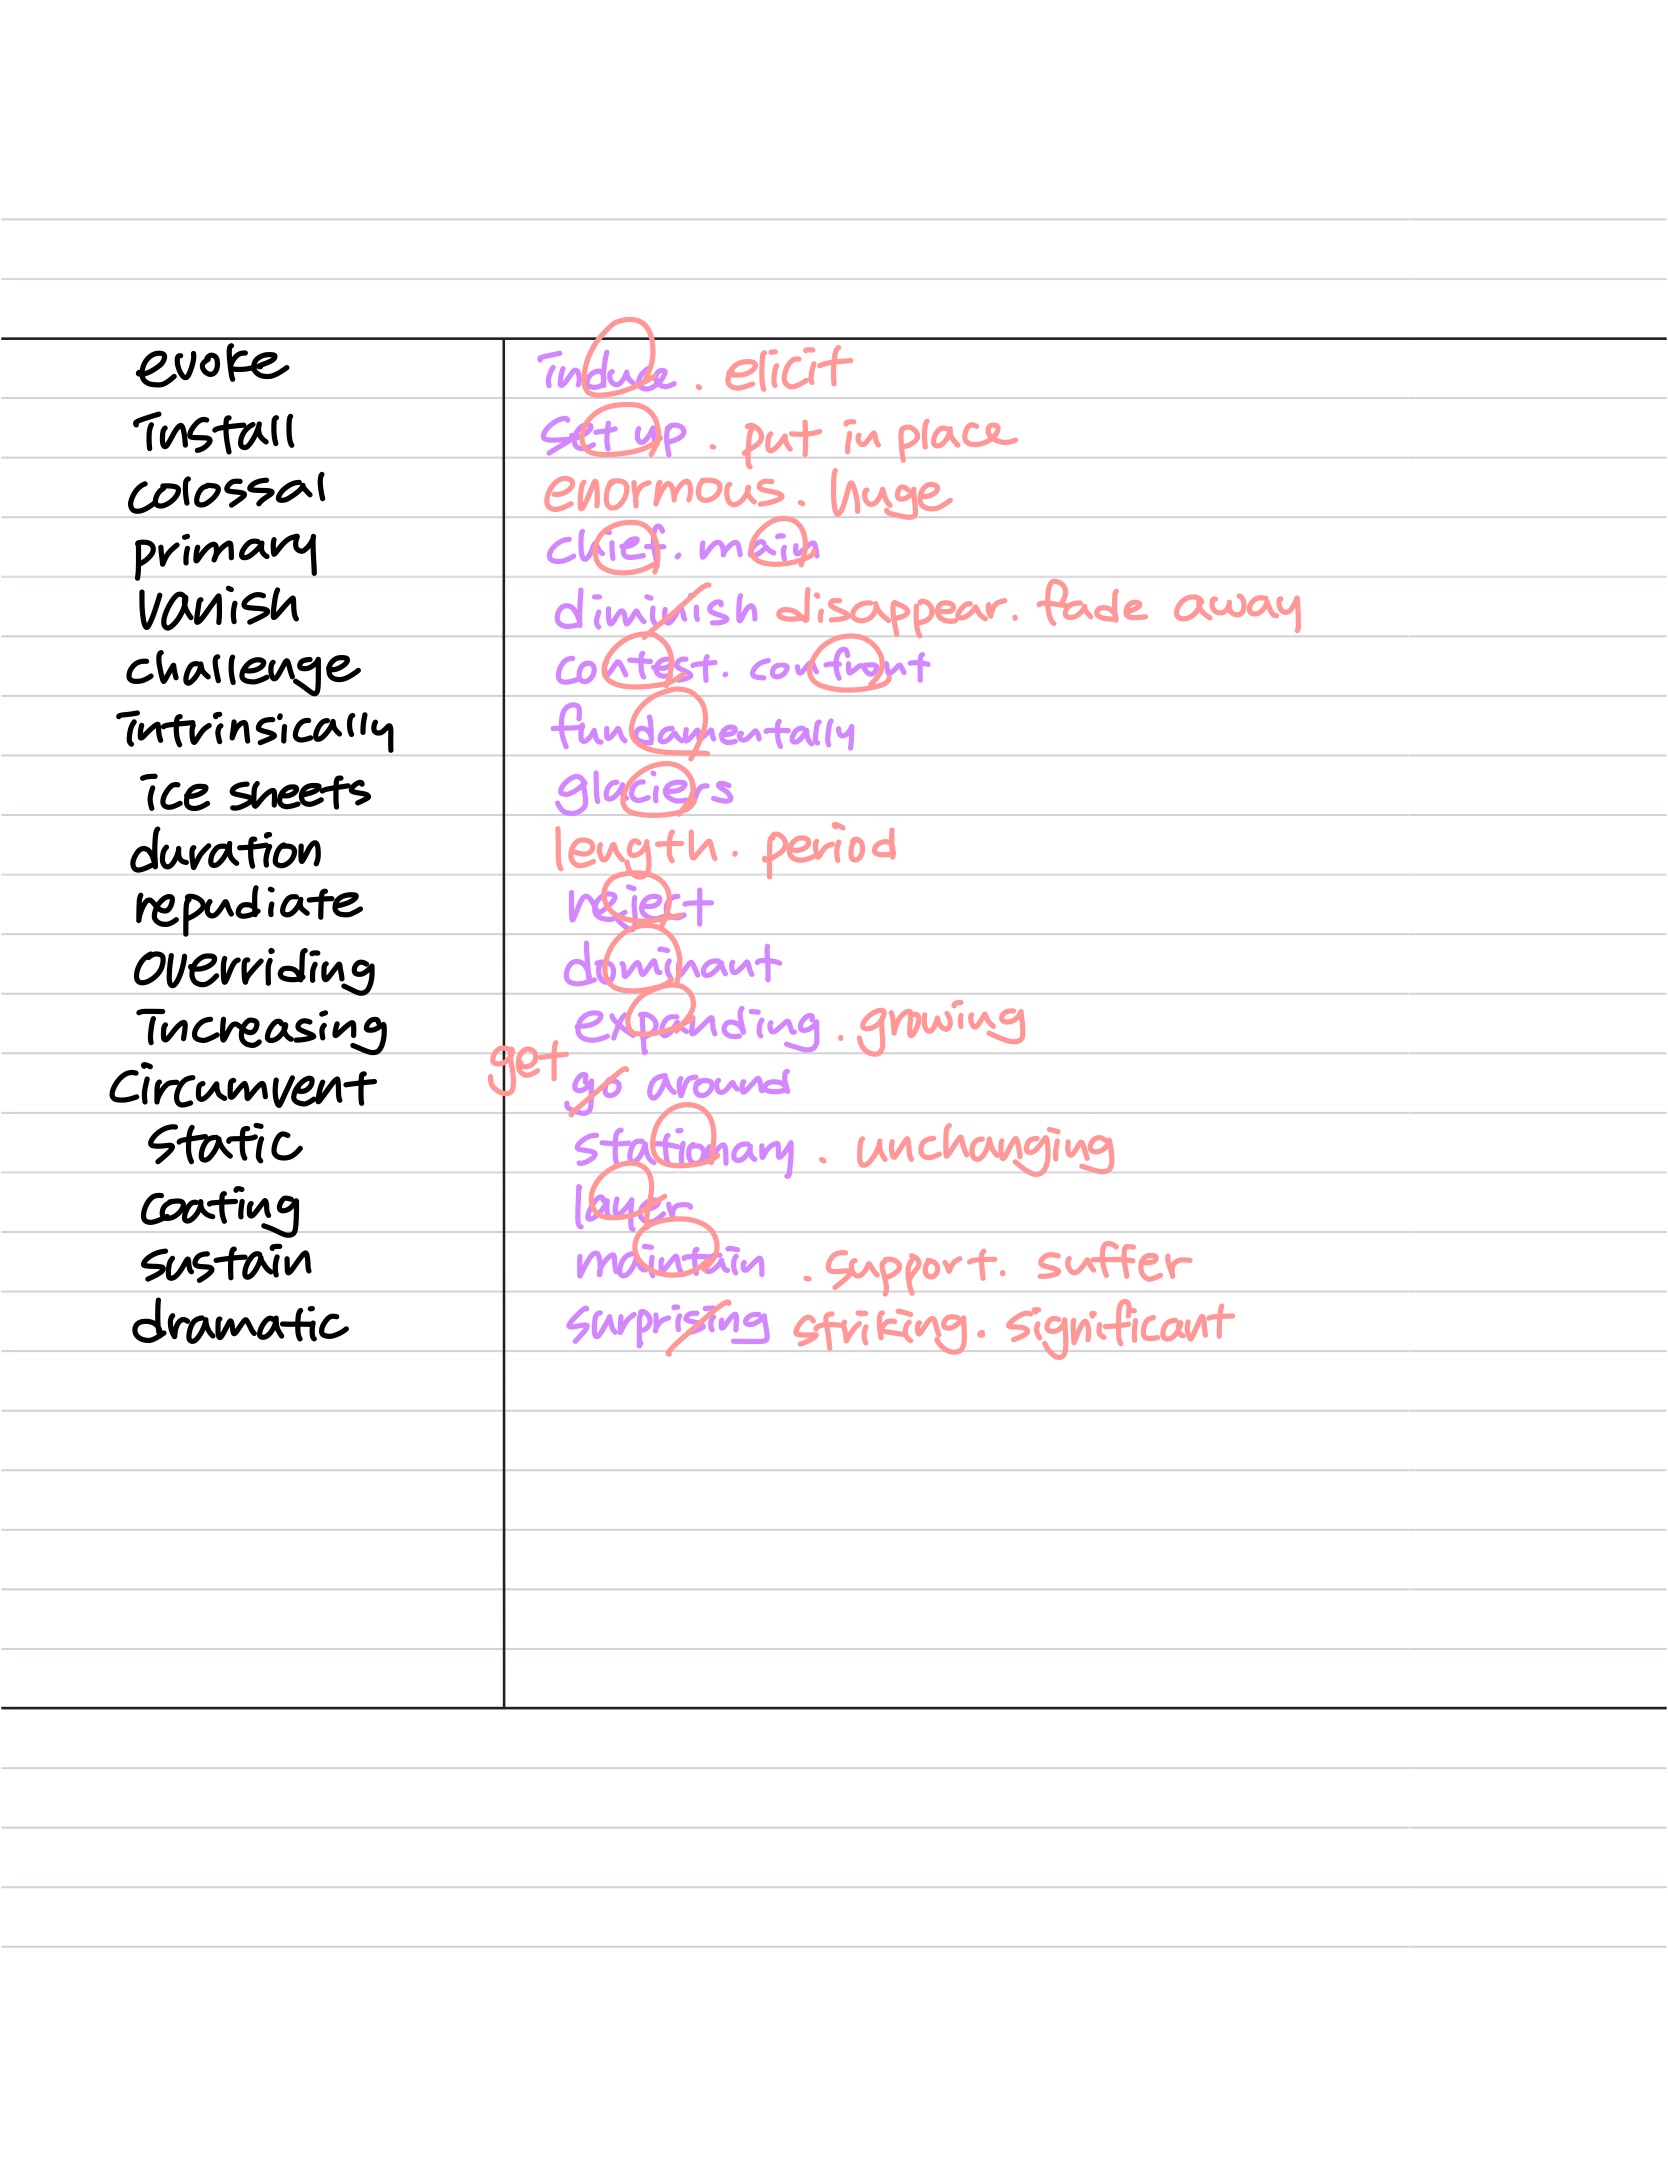 evoke induce . elicit
install set up . put in place
colossal enormous . huge
primary chief . main
vanish diminish disappear . fade away
challenge contest . confront
intrinsically fundamentally
ice sheets glaciers
duration length . period
repudiate reject
overriding dominant
increasing expanding . growing
get
circumvent go around
static stationary . unchanging
coating layer
sustain maintain . support . suffer
dramatic surprising striking . significant